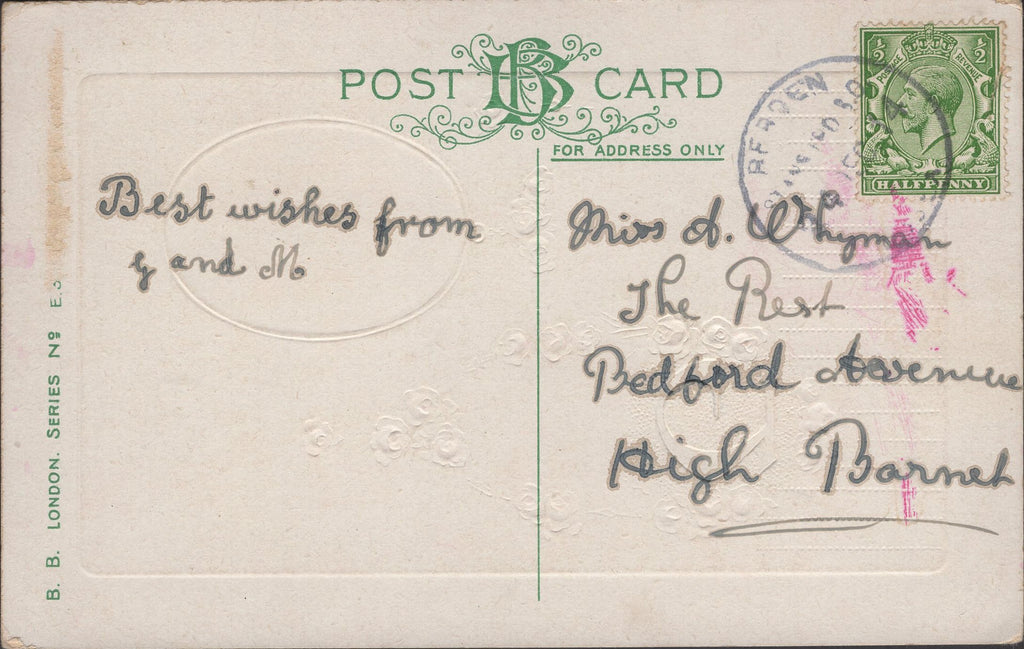 POST CARD
FOR ADDRESS ONLY
Best wishes from
G and M
Miss A. Whyman
The Rest
Bedford Avenue
High Barnet
B. B. LONDON. SERIES Nº E.
½ ½
POSTAGE REVENUE
HALFPENNY